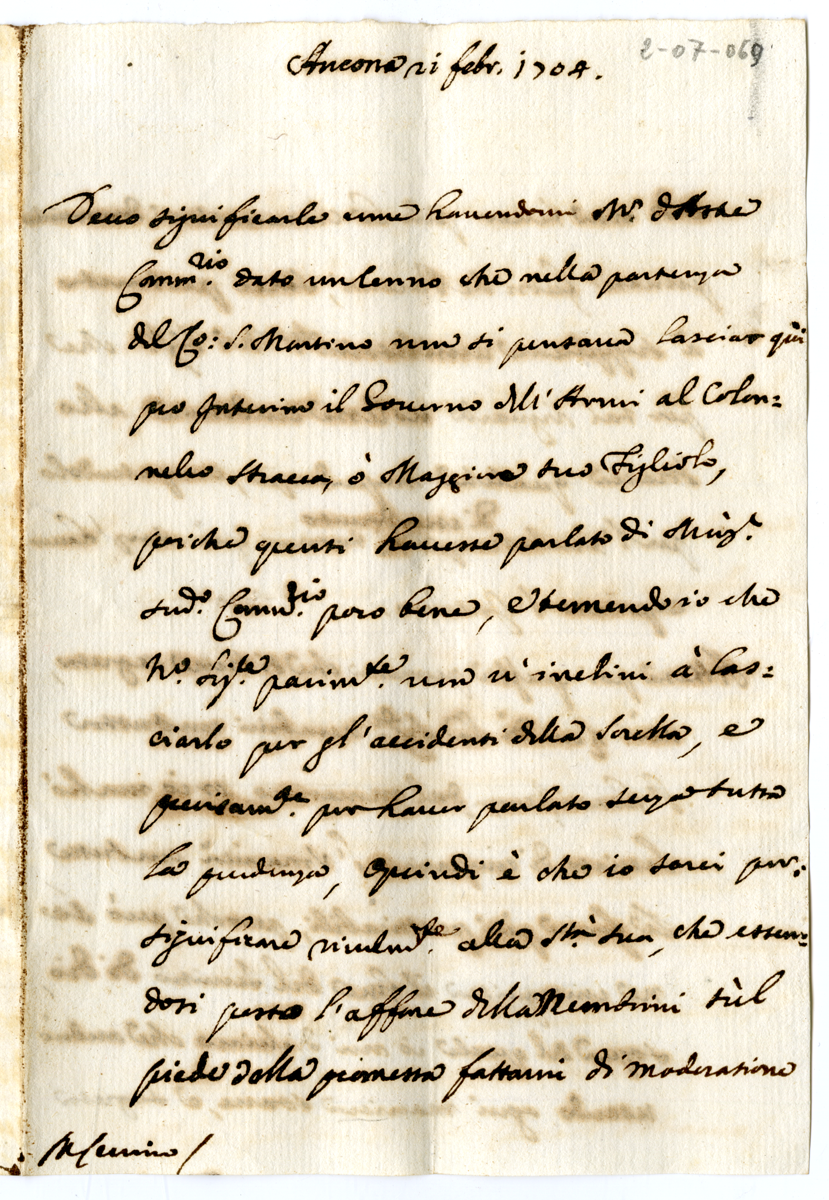 2-07-069
Ancona 21 febr. 1704.
Devo significarle come havendomi Mr. d'Aste
Commrio. dato un cenno che nella partenza
del Co: S. Martino non si pensava lasciar quì
pro interim il Governo dell'Armi al Colon=
nello Stracca, ò Maggiore suo Figliolo,
perche questi havesse parlato di
sudo. Commrio. poco bene, e temendo io che
No. Sigre. parimte. non s'inclini à las=
ciarlo per gl'accidenti della Sorella, e
precisamte. per haver parlato senza tutta
la prudenza, quindi è che io sarei per
significare rivelmte. alla Stà. Sua, che essen=
dosi posto l'affare della sùl
piede della promessa fattami di moderatione